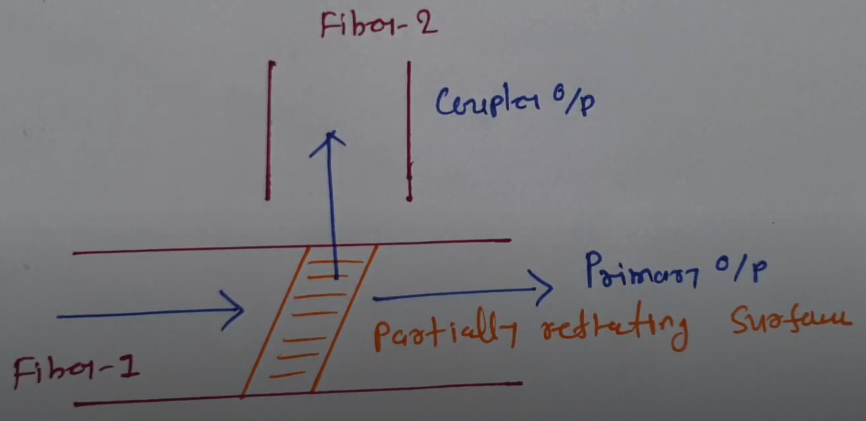 Fiber-2
Coupler o/p
Primary o/p
Partially reflecting Surface
Fiber-1